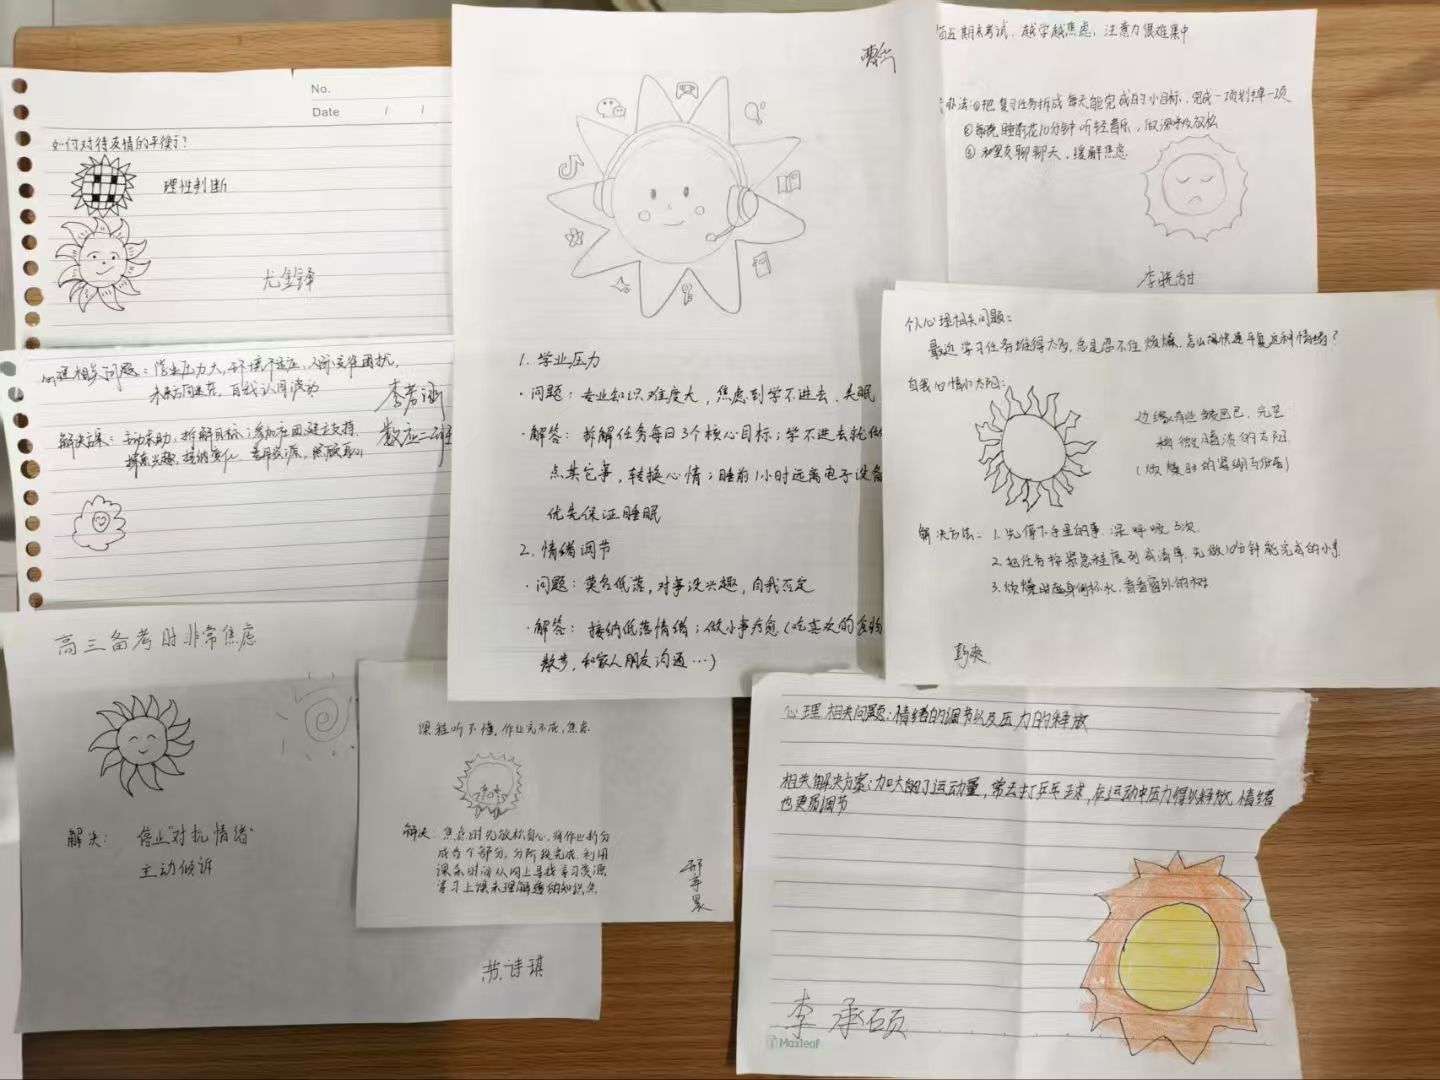 No.
Date / /
如何对待友情的平衡?
理性判断
尤金铎
心理相关问题：学业压力大，环境不适应，人际交往困扰，
未来方向迷茫，自我认同波动
李若涵
数应二班
解决方案：主动求助，拆解目标；参加社团建立支持
探索兴趣，接纳变化，善用资源，照顾身心
高三备考时非常焦虑
解决：停止"对抗情绪"
主动倾诉
苏诗琪
课程听不懂，作业完不成，焦虑
解决：焦虑时先放松身心，将作业拆分
成各个部分，分阶段完成，利用
课余时间从网上寻找学习资源
学习上课未理解透的知识点
1. 学业压力
·问题：专业知识难度大，焦虑到学不进去、失眠
·解答：拆解任务每日3个核心目标；学不进去就做
点其它事，转换心情；睡前1小时远离电子设备
优先保证睡眠
2. 情绪调节
·问题：莫名低落，对事没兴趣，自我否定
·解答：接纳低落情绪；做小事疗愈（吃喜欢的食物
散步，和家人朋友沟通…）
临近期末考试，越学越焦虑，注意力很难集中
办法：①把复习任务拆成每天能完成的小目标，完成一项划掉一项
②每晚睡前花10分钟听轻音乐，做深呼吸放松
③和朋友聊聊天，缓解焦虑
李晓甜
个人心理相关问题：
最近学习任务堆得太多，总是忍不住烦燥，怎么很快速平复这种情绪？
自我心情小太阳：
边缘有些皱巴巴，光芒
稍微暗淡的太阳
(烦燥时的紧绷与低落)
解决方法：1. 先停下手里的事，深呼吸3次.
2. 把任务按紧急程度列成清单，先做10分钟能完成的小事
3. 烦燥时起身倒杯水，看看窗外的树
彭爽
心理相关问题：情绪的调节以及压力的释放
相关解决方案：加大的了运动量，常去打乒乓球，在运动中压力得以释放，情绪
也更易调节
李承硕
Maxleaf